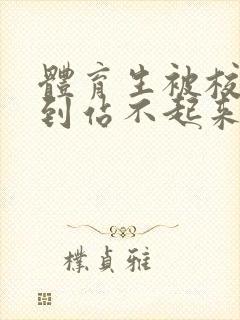 體育生被校
到佔不起来
樸貞雅